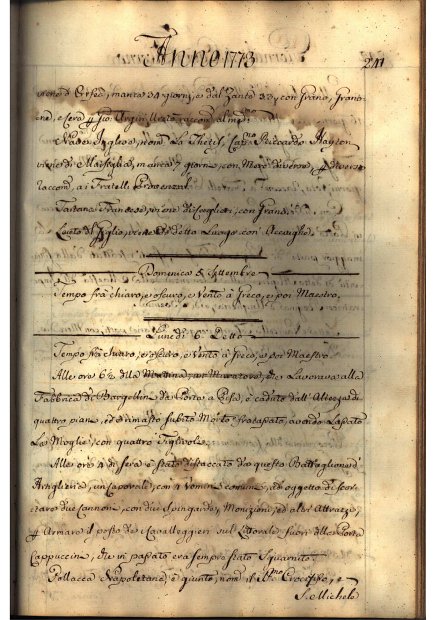 Anno 1773
241
viene d'Efeo, manca 34 giorni, e dal Zante 23, con Grano, Grano-
ne, e Cera
Nave Inglese, nom. La Thetil, Cap.no Riccardo
viene di Marsiglia, manca 7 giorni, con Merci diverse,
raccom. a i Fratelli Provenzal
Tartana Francese, viene di, con Grano
Leuto di Giglio, viene da detto Luogo con Acciughe
Domenica 5. Settembre
Tempo frà chiaro, e oscuro, e Vento à Greco, e poi Maestro.
Lunedì 6. Detto
Tempo frà chiaro, e oscuro, e Vento à Greco, e poi Maestro
Alle ore 6½ della Mattina, un Muratore, che Lavorava alla
Fabbrica di Borgellin da Porta a Pisa, è caduto dall'Altezza di
quattro piani, ed è rimasto subito Morto fracapato, avendo Lapato
La Moglie, con quattro Figlivole.
Alle ore 4 di sera è stato distaccato da questo Battaglione d'
Artiglieria, un Caporale, con 4 Vomini comuni, ad oggetto di scor-
tare due Cannoni, con due Spingarde, Monizioni, ed altri Attrazzi,
Armare il posto de Cavalleggieri sul Littorale fuori della Porta
Cappuccina, che in papato era sempre stato Sguarnito.
Pollacca Napoletana è giunta, nom. il SS.mo Crocefisso, e
S. Michele